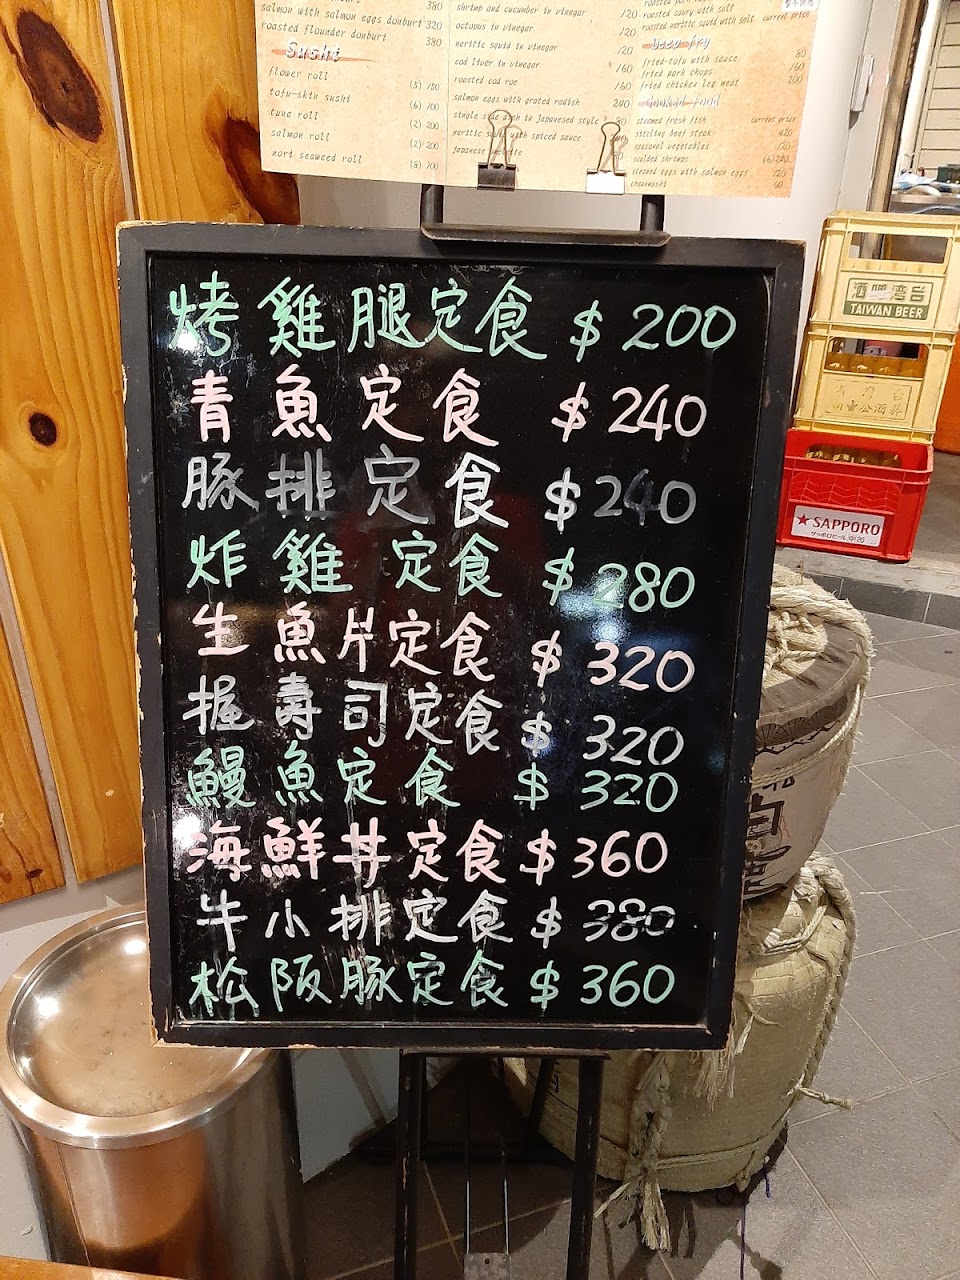 salmon with salmon eggs donburt 320
roasted flounder donburt 380
Sushi
flower roll
tofu-skin sushi (6) /00
tuna roll (2) 200
salmon roll (2) 200
nort seaweed roll
shrimp and cucumber in vinegar /20
octopus in vinegar /20
nerttic squid in vinegar /20
cod liver in vinegar /60
roasted cod roe /60
salmon eggs with grated radish 240
nerttic with spiced sauce
roasted saury with salt current price
roasted nerttic squid with salt
Deep fry
fried-tofu with sauce 80
fried pork chops 200
fried chicken leg meat 200
steamed fresh fish current price
sizzling beef steak 420
seasonal vegetables 120
scalded shrimps (6)240
steamed eggs with salmon eggs 120
chawmushi 60
烤雞腿定食 $200
青魚定食 $240
豚排定食 $240
炸雞定食 $280
生魚片定食 $320
握壽司定食 $320
鰻魚定食 $320
海鮮丼定食 $360
牛小排定食 $380
松阪豚定食 $360
酒啤灣台
TAIWAN BEER
★SAPPORO
サッポロビール 中20